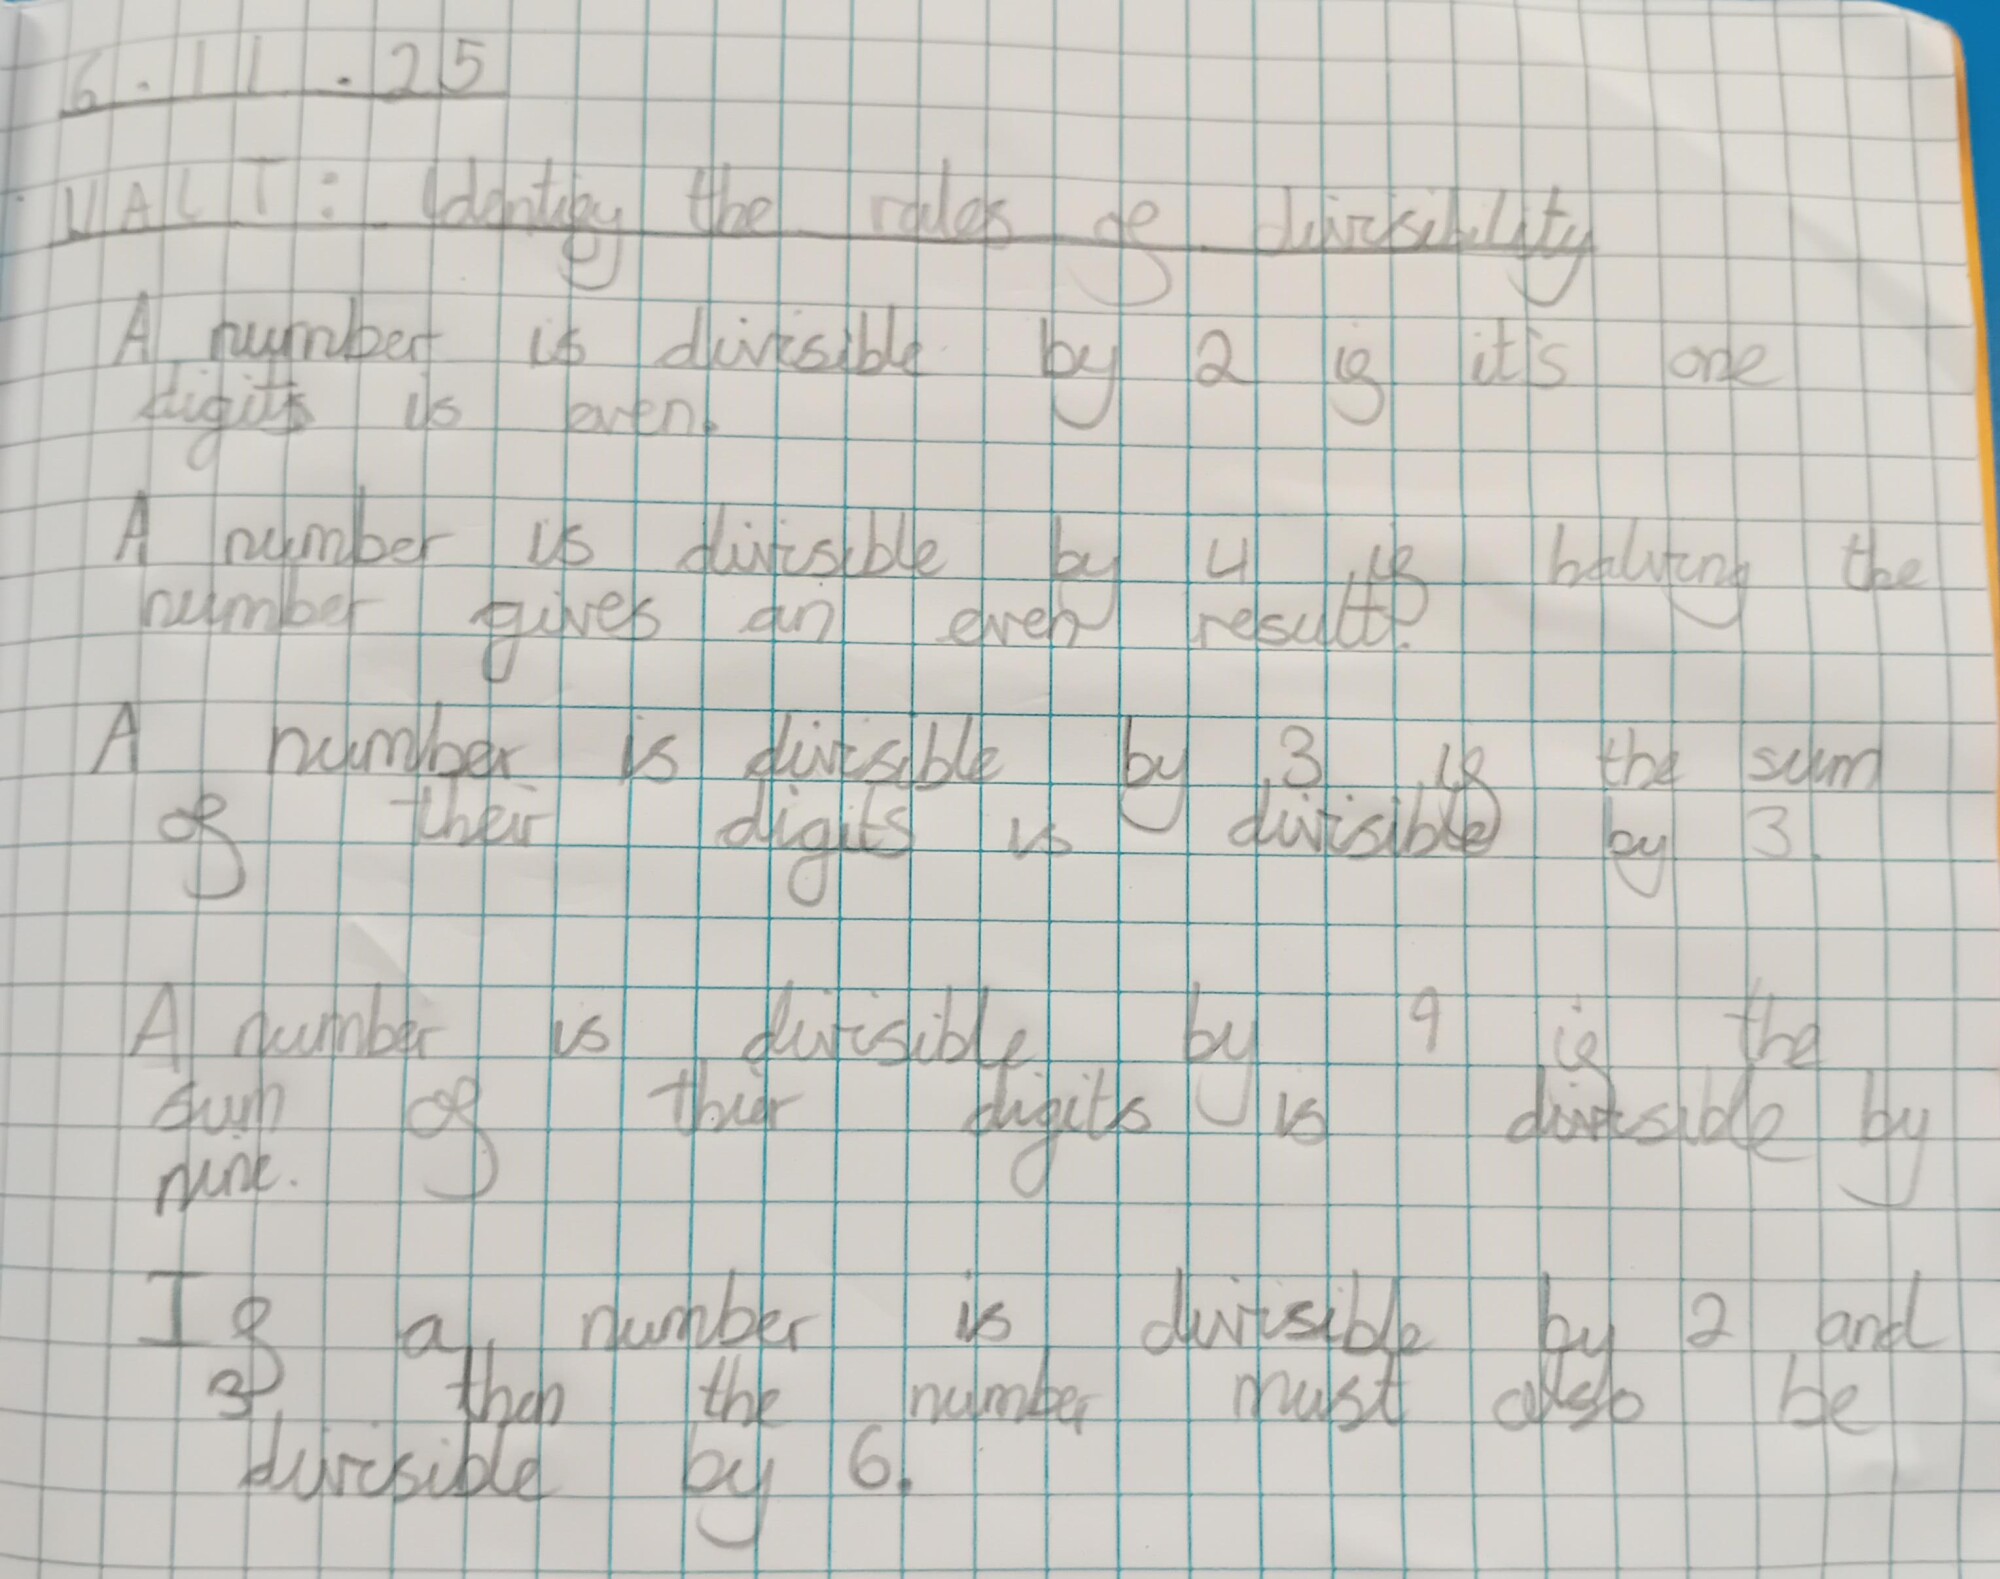 6.11.25
WALT: Identify the rules of divisibility
A number is divisible by 2 if it's one
digits is even.
A number is divisible by 4 if halving the
number gives an even result.
A number is divisible by 3 if the sum
of their digits is divisible by 3.
A number is divisible by 9 if the
sum of thier digits is divisible by
nine.
If a number is divisible by 2 and
3 then the number must also be
divisible by 6.